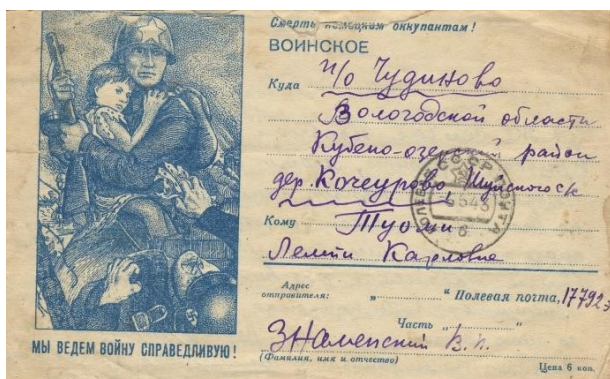 Смерть немецким оккупантам!
ВОИНСКОЕ
Куда п/о Чудиново
Вологодской области
Кубено-озерский район
дер. Кочеурово Шуйского с/с
Кому Туоми
Лемпи Карловне
Адрес отправителя: „ “ Полевая почта, 17792
Часть „ “
Знаменский В. П.
(Фамилия, имя и отчество)
Цена 6 коп.
МЫ ВЕДЕМ ВОЙНУ СПРАВЕДЛИВУЮ!